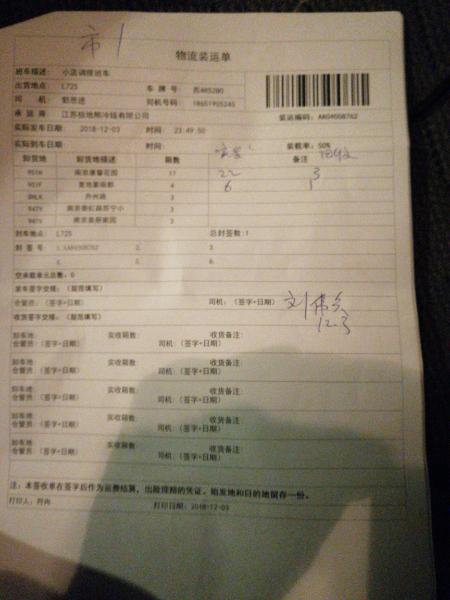 市1
物流装运单
班车描述: 小店调拨班车
出货地点: L725 车 牌 号: 苏AR5280
司 机: 司机号码: 18651905245
承 运 商 江苏极地熊冷链有限公司 装运编码: AK04008762
实际发车日期: 2018-12-03 时间: 23:49:50 装载率: 50%
实际到车日期: 时间: 备注
卸货地 卸货地描述 箱数
951H 南京康馨花园 17 22 3
951F 4 6 1
SHLK 丹州路 3
947Y 南京泰虹路苏宁小 3
3
封车地点: L725 总封签数: 1
封 签 号: 1.AK04008762 2. 3.
4. 5. 6.
空承载单元总量: 0
发车签字交接: (规范填写)
仓管员: (签字+日期) 司机: (签字+日期) 12.3
收货签字交接: (规范填写)
卸车地: 实收箱数: 收货备注:
仓管员: (签字+日期) 司机: (签字+日期)
卸车地: 实收箱数: 收货备注:
仓管员: (签字+日期) 司机: (签字+日期)
卸车地: 实收箱数: 收货备注:
仓管员: (签字+日期) 司机: (签字+日期)
卸车地: 实收箱数: 收货备注:
仓管员: (签字+日期) 司机: (签字+日期)
卸车地: 实收箱数: 收货备注:
仓管员: (签字+日期) 司机: (签字+日期)
注: 本签收单在签字后作为运费结算, 出险理赔的凭证。始发地和目的地留存一份。
打印人: 丹冉 打印日期: 2018-12-03